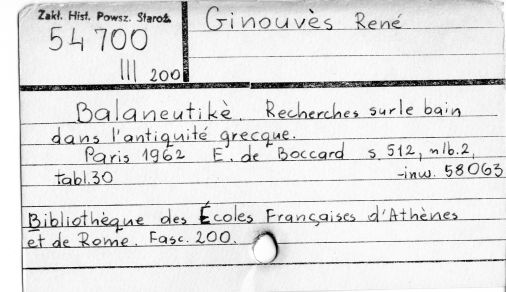 Zakł. Hist. Powsz. Staroż.
54 700
III 200
Ginouvès René
Balaneutikè. Recherches sur le bain
dans l'antiquité grecque.
Paris 1962 E. de Boccard s. 512, nlb. 2,
tabl. 30 -inw. 58063
Bibliothèque des Écoles Françaises d'Athènes
et de Rome. Fasc. 200.